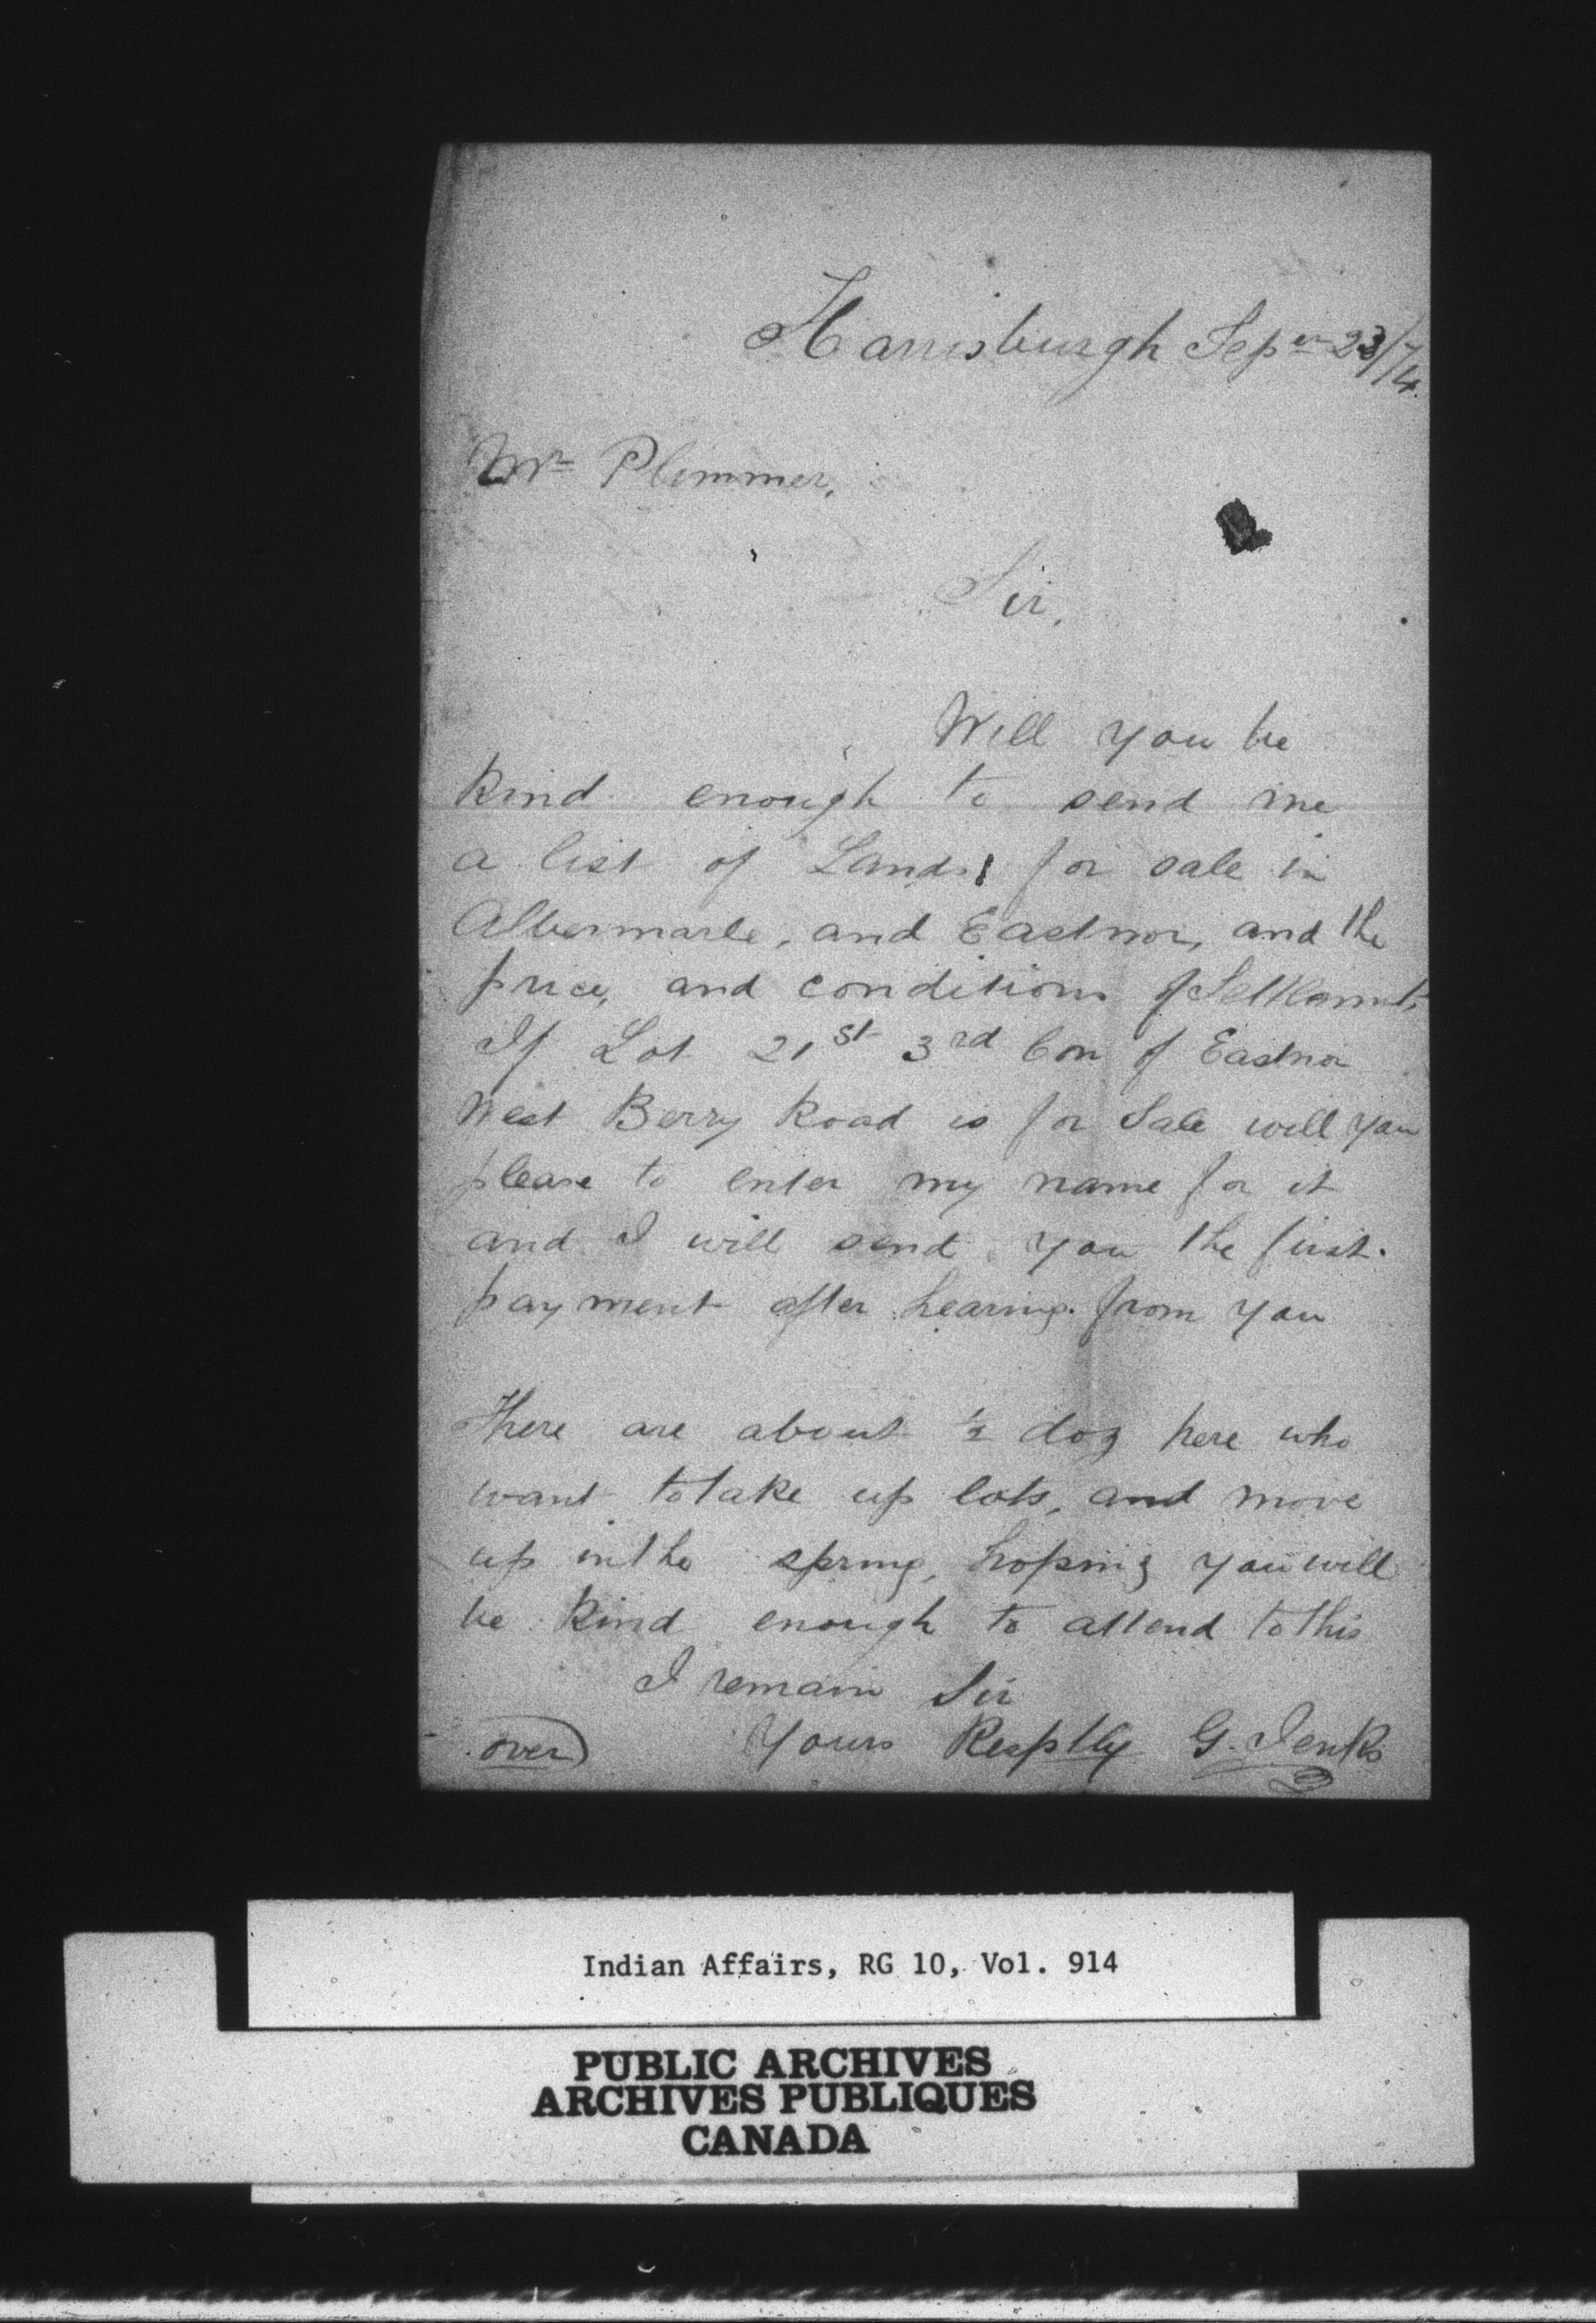 Harrisburgh Sepr 23/74.
Mr Plimmer,
Sir,
Will you be
kind enough to send me
a list of Lands for sale in
Albermarle, and Eastnor, and the
price, and conditions of Settlemnt,
If Lot 21st 3rd Con of Eastnor
West Berry Road is for Sale will you
please to enter my name for it
and I will send you the first
payment after hearing from you
There are about ½ doz here who
want to take up lots, and move
up in the spring, hoping you will
be kind enough to attend to this
I remain Sir
Yours Resptly G. Jenks
over
Indian Affairs, RG 10, Vol. 914
PUBLIC ARCHIVES
ARCHIVES PUBLIQUES
CANADA